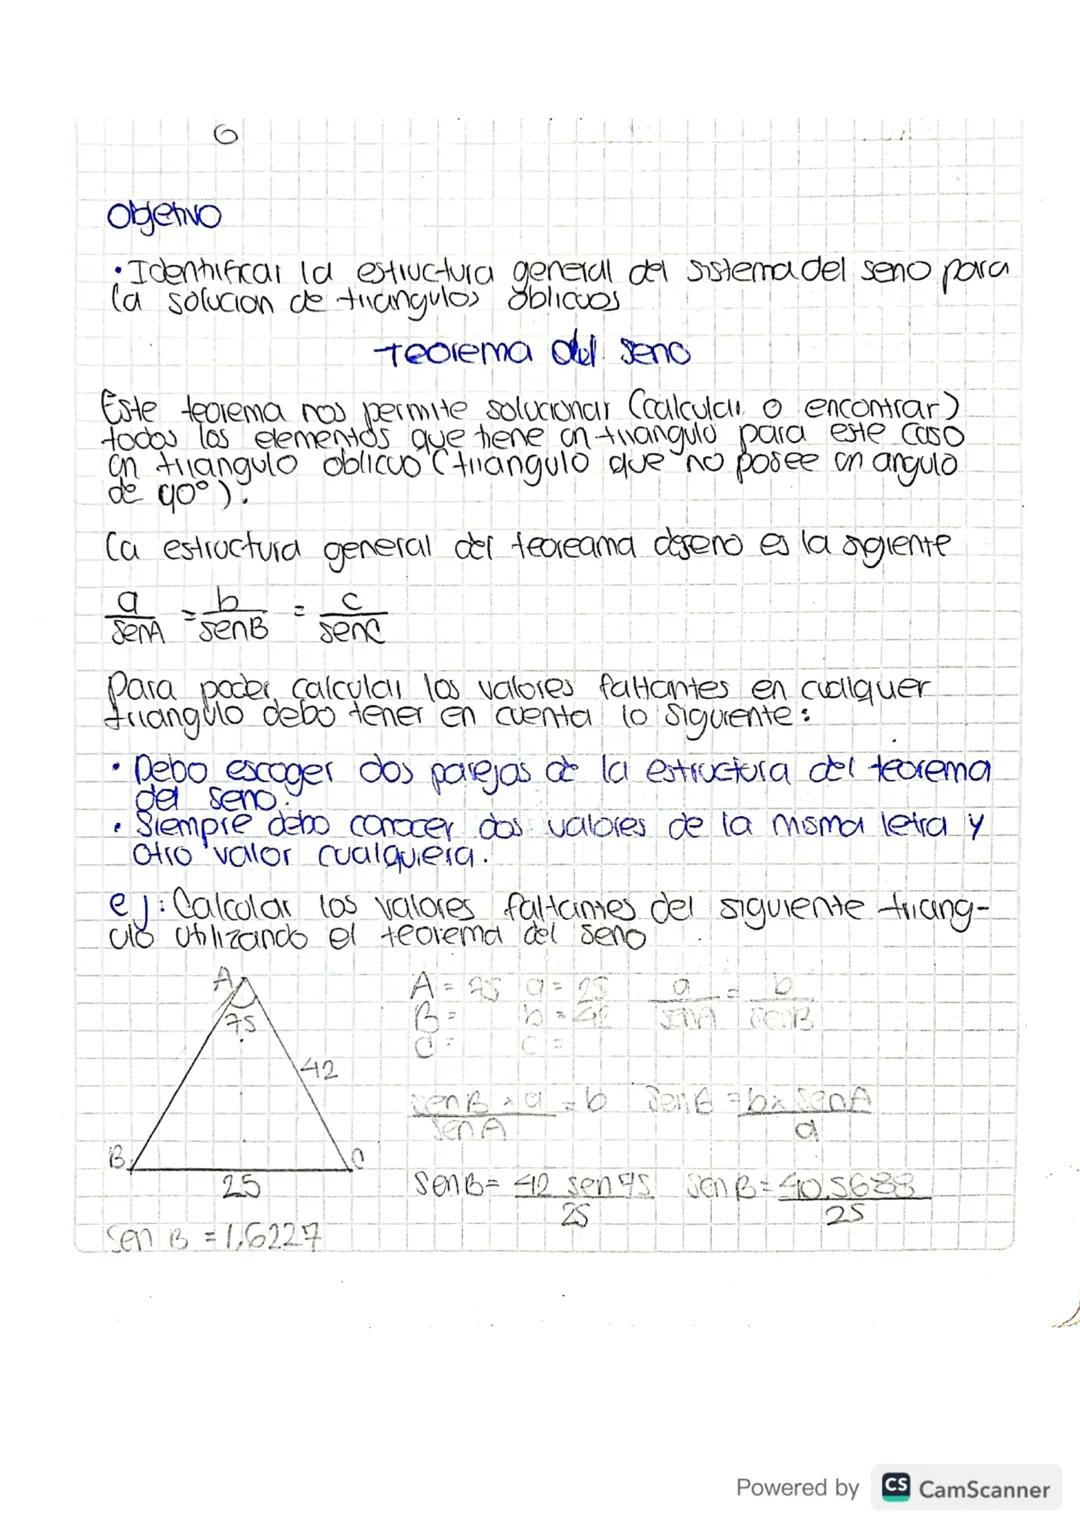 6
Objetivo
• Identificar la estructura general del sistema del seno para
la solucion de triangulos oblicuos
Teorema del seno
Este teorema nos permite solucionar (calcular o encontrar)
todos los elementos que tiene un triangulo para este caso
un triangulo oblicuo (triangulo que no posee un angulo
de 90°).
La estructura general del teoreama deseno es la sigiente
a/senA = b/senB = c/senC
Para poder calcular los valores faltantes en cualquer
triangulo debo tener en cuenta lo siguiente:
• Debo escoger dos parejas de la estructura del teorema
del seno.
• Siempre debo conocer dos valores de la misma letra y
otro valor cualquiera.
ej: Calcular los valores faltantes del siguiente triang-
ulo utilizando el teorema del seno
A
75
42
B
C
25
A = 75 a = 25 a/senA = b/senB
B = b = 42
C = c =
senB × a/senA = b senB = b x senA/a
senB = 42 sen 75/25 senB = 40.5688/25
sen B = 1,6227
Powered by CS CamScanner